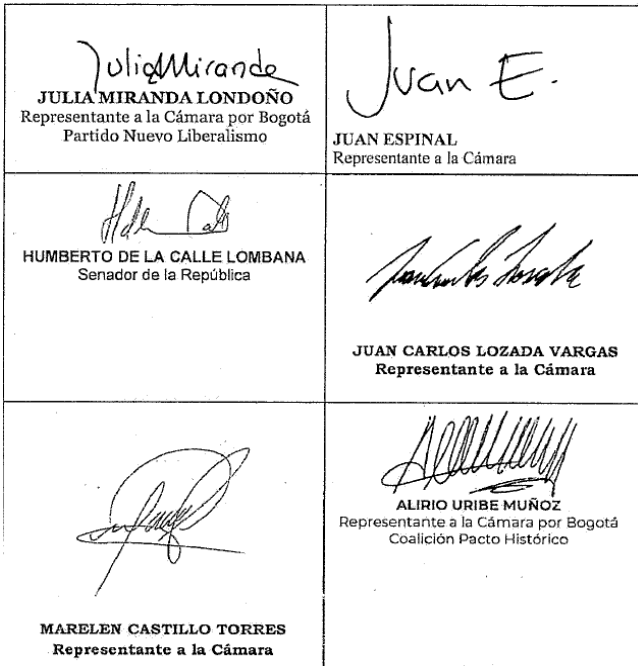 Julia Miranda
JULIA MIRANDA LONDOÑO
Representante a la Cámara por Bogotá
Partido Nuevo Liberalismo
Juan E.
JUAN ESPINAL
Representante a la Cámara
HUMBERTO DE LA CALLE LOMBANA
Senador de la República
JUAN CARLOS LOZADA VARGAS
Representante a la Cámara
MARELEN CASTILLO TORRES
Representante a la Cámara
ALIRIO URIBE MUÑOZ
Representante a la Cámara por Bogotá
Coalición Pacto Histórico